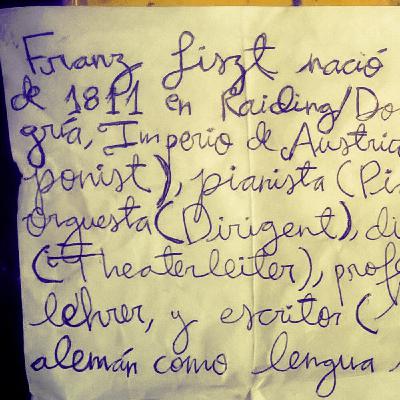 Franz Liszt nació
de 1811 en Raiding/Do
gría, Imperio de Austria
ponist), pianista (Pi
orquesta (Dirigent), di
(Theaterleiter), profe
lehrer, y escritor (
alemán como lengua